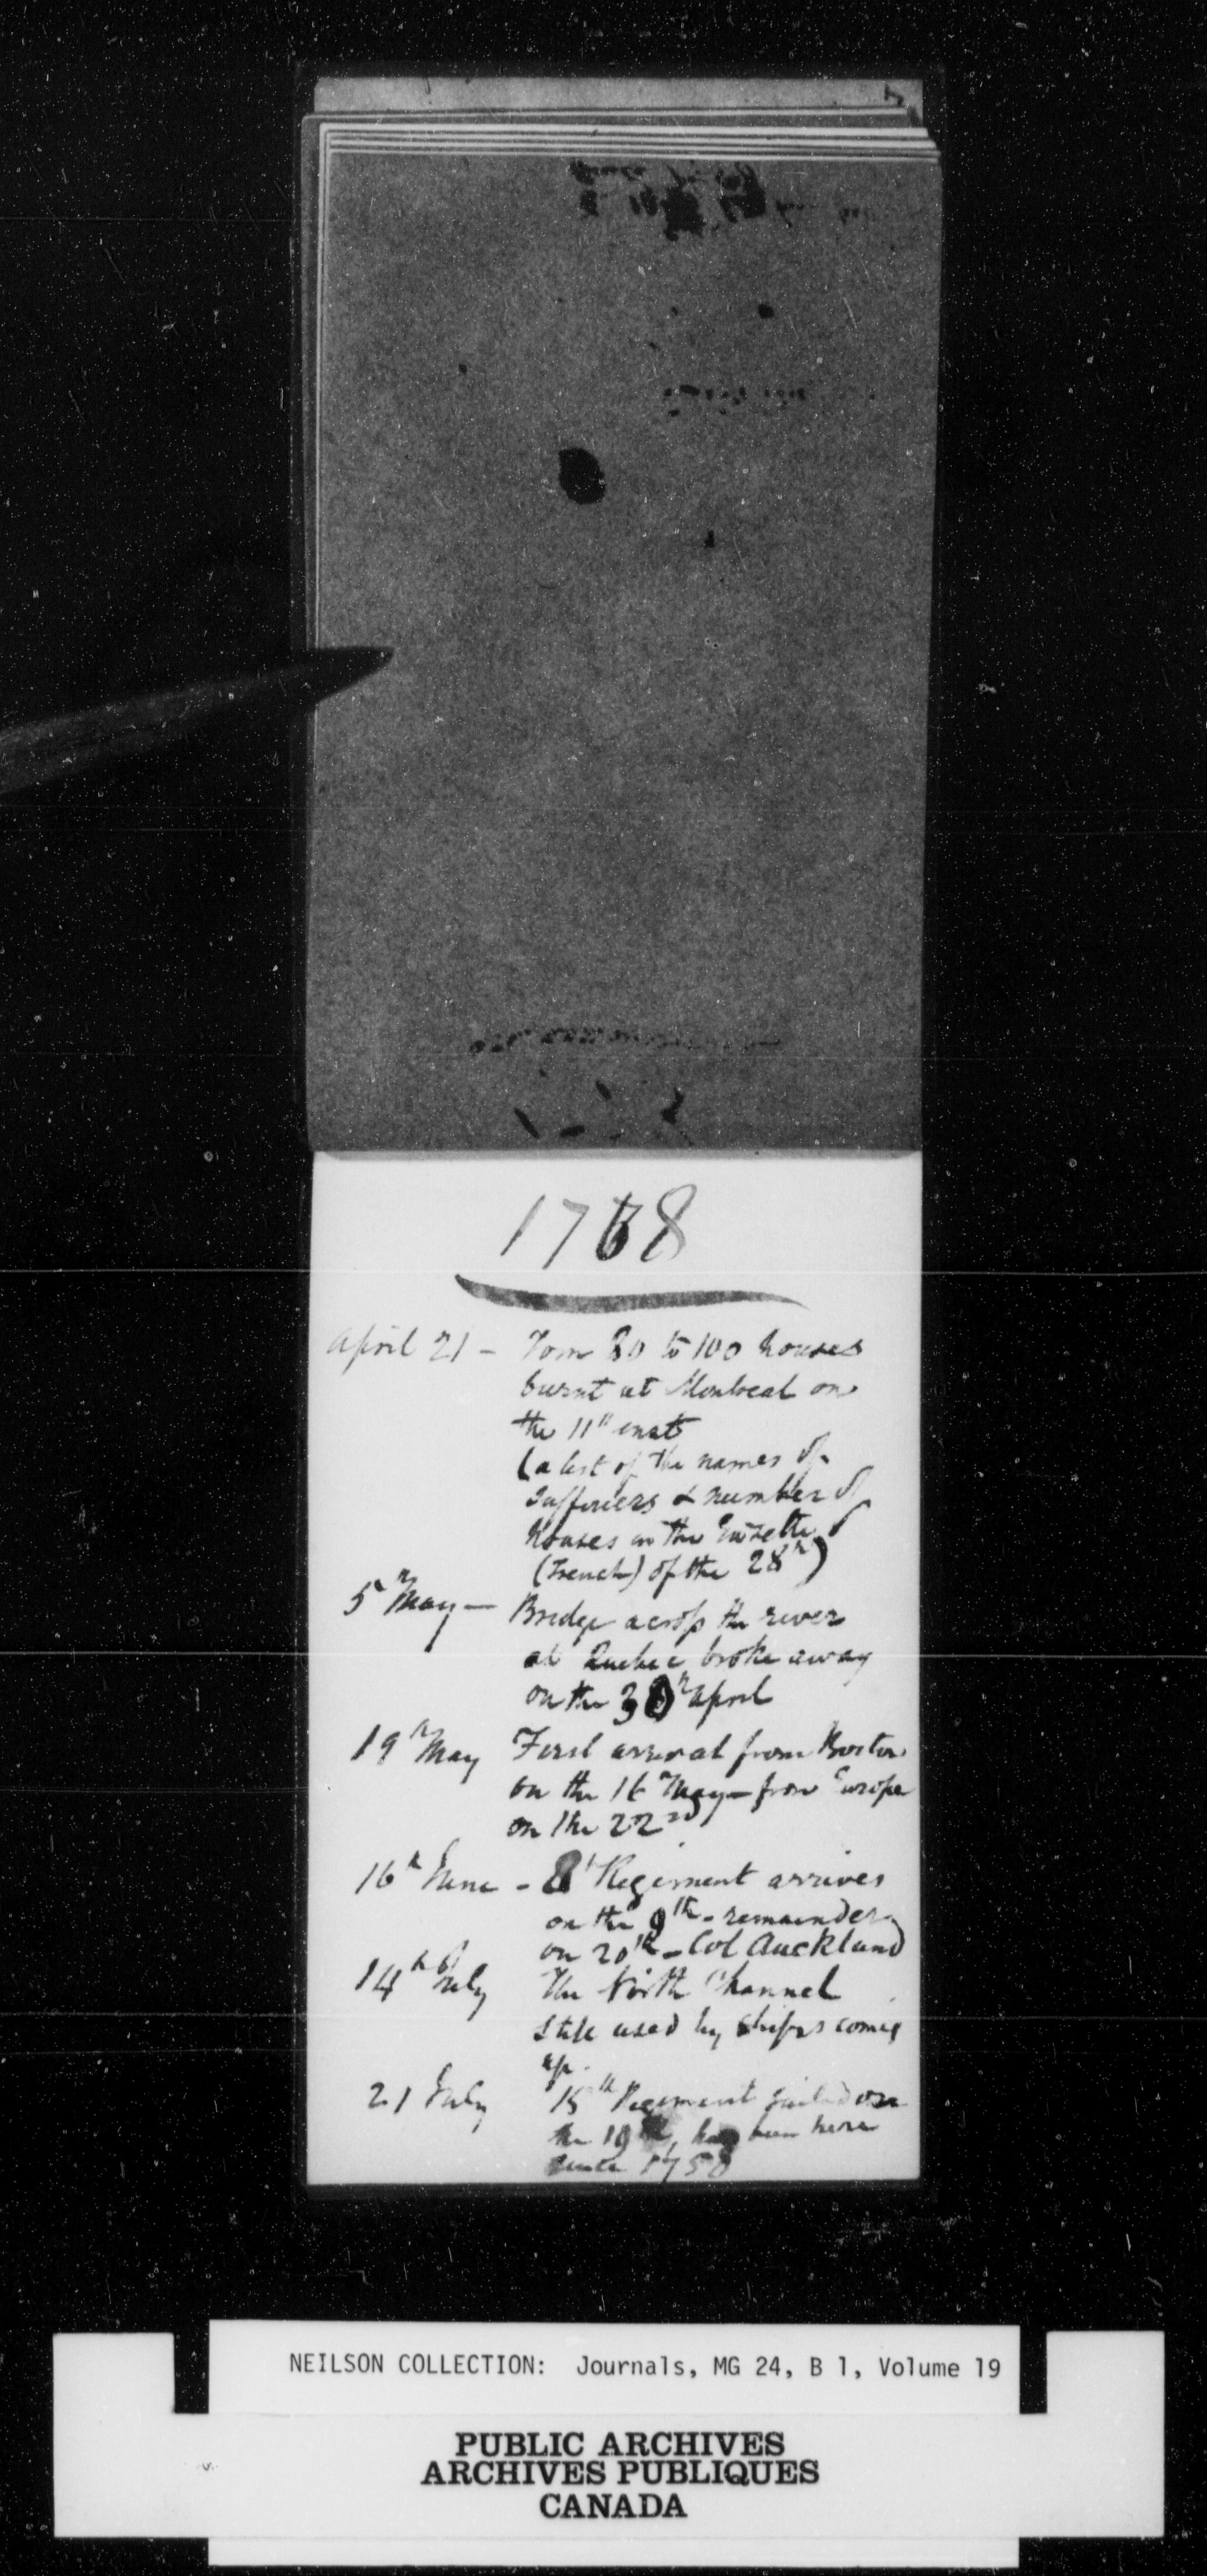 1768
April 21 - From 80 to 100 houses
burnt at Montreal on
the 11th inst
(a list of the names of
Sufferers & number of
Houses in the Gazette
(French) of the 28th)
5th May — Bridge across the river
at Quebec broke away
on the 30th April
19th May First arrival from Boston
on the 16 May - from Europe
on the 22nd
16th June - 8th Regiment arrives
on the 9th - remainder
on 20th - Col Auckland
14th July The North Channel
Still used by ships coming
up.
21 July 15th Regiment sailed on
the 10th, has been here
since 1758
NEILSON COLLECTION: Journals, MG 24, B 1, Volume 19
PUBLIC ARCHIVES
ARCHIVES PUBLIQUES
CANADA